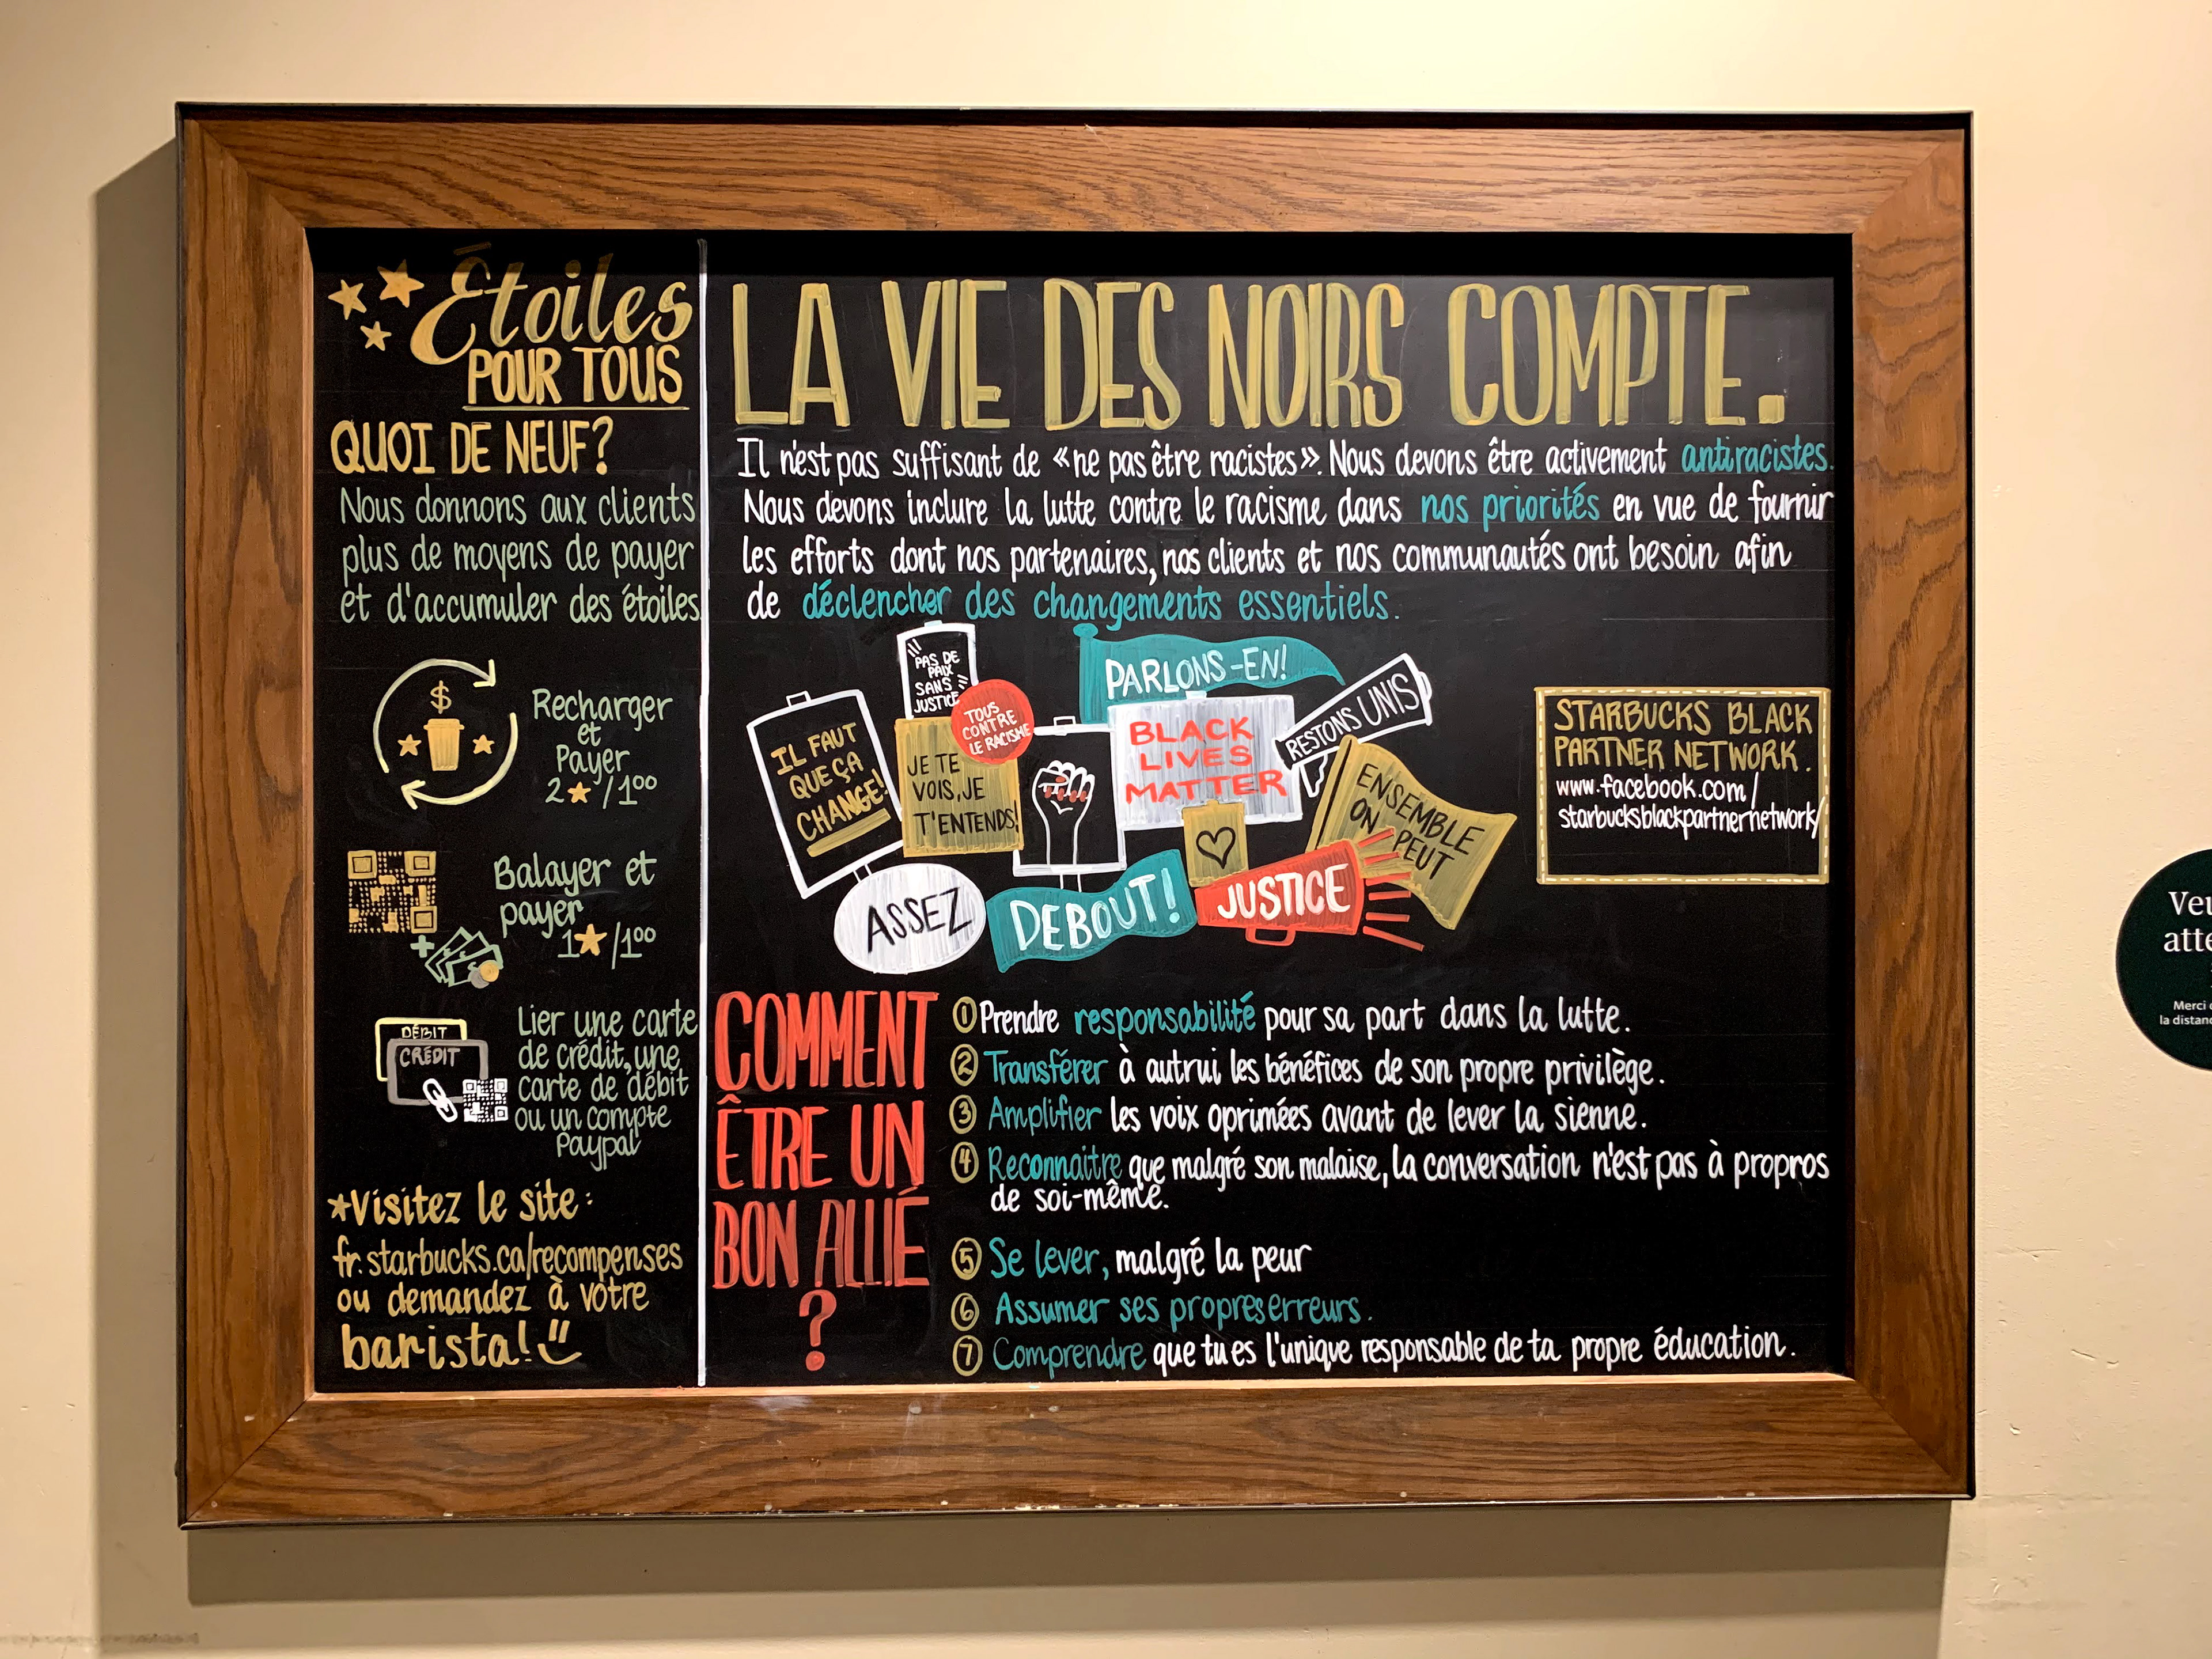 Étoiles
POUR TOUS
QUOI DE NEUF?
Nous donnons aux clients
plus de moyens de payer
et d'accumuler des étoiles
$
Recharger
et
Payer
2★/1⁰⁰
Balayer et
payer
1★/1⁰⁰
+
DÉBIT
CRÉDIT
Lier une carte
de crédit, une
carte de débit
ou un compte
Paypal
★Visitez le site:
fr.starbucks.ca/recompenses
ou demandez à votre
barista!
LA VIE DES NOIRS COMPTE.
Il n'est pas suffisant de «ne pas être racistes». Nous devons être activement antiracistes.
Nous devons inclure la lutte contre le racisme dans nos priorités en vue de fournir
les efforts dont nos partenaires, nos clients et nos communautés ont besoin afin
de déclencher des changements essentiels.
IL FAUT
QUE ÇA
CHANGE!
"PAS DE
PAIX
SANS
JUSTICE"
TOUS
CONTRE
LE RACISME
JE TE
VOIS, JE
T'ENTENDS!
PARLONS-EN!
BLACK
LIVES
MATTER
RESTONS UNIS
ENSEMBLE
ON PEUT
ASSEZ
DEBOUT!
JUSTICE
STARBUCKS BLACK
PARTNER NETWORK.
www.facebook.com/
starbucksblackpartnernetwork/
COMMENT
ÊTRE UN
BON ALLIÉ
?
① Prendre responsabilité pour sa part dans la lutte.
② Transférer à autrui les bénéfices de son propre privilège.
③ Amplifier les voix oprimées avant de lever la sienne.
④ Reconnaitre que malgré son malaise, la conversation n'est pas à propros
de soi-même.
⑤ Se lever, malgré la peur
⑥ Assumer ses propres erreurs.
⑦ Comprendre que tu es l'unique responsable de ta propre éducation.
Merci
la